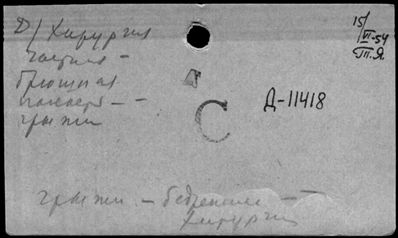 Д/ Хирургия
частная -
Брюшная
полость - -
грыжи
15/VI-54
III.Я.
С
Д-11418
грыжи - бедренные - -
хирургия